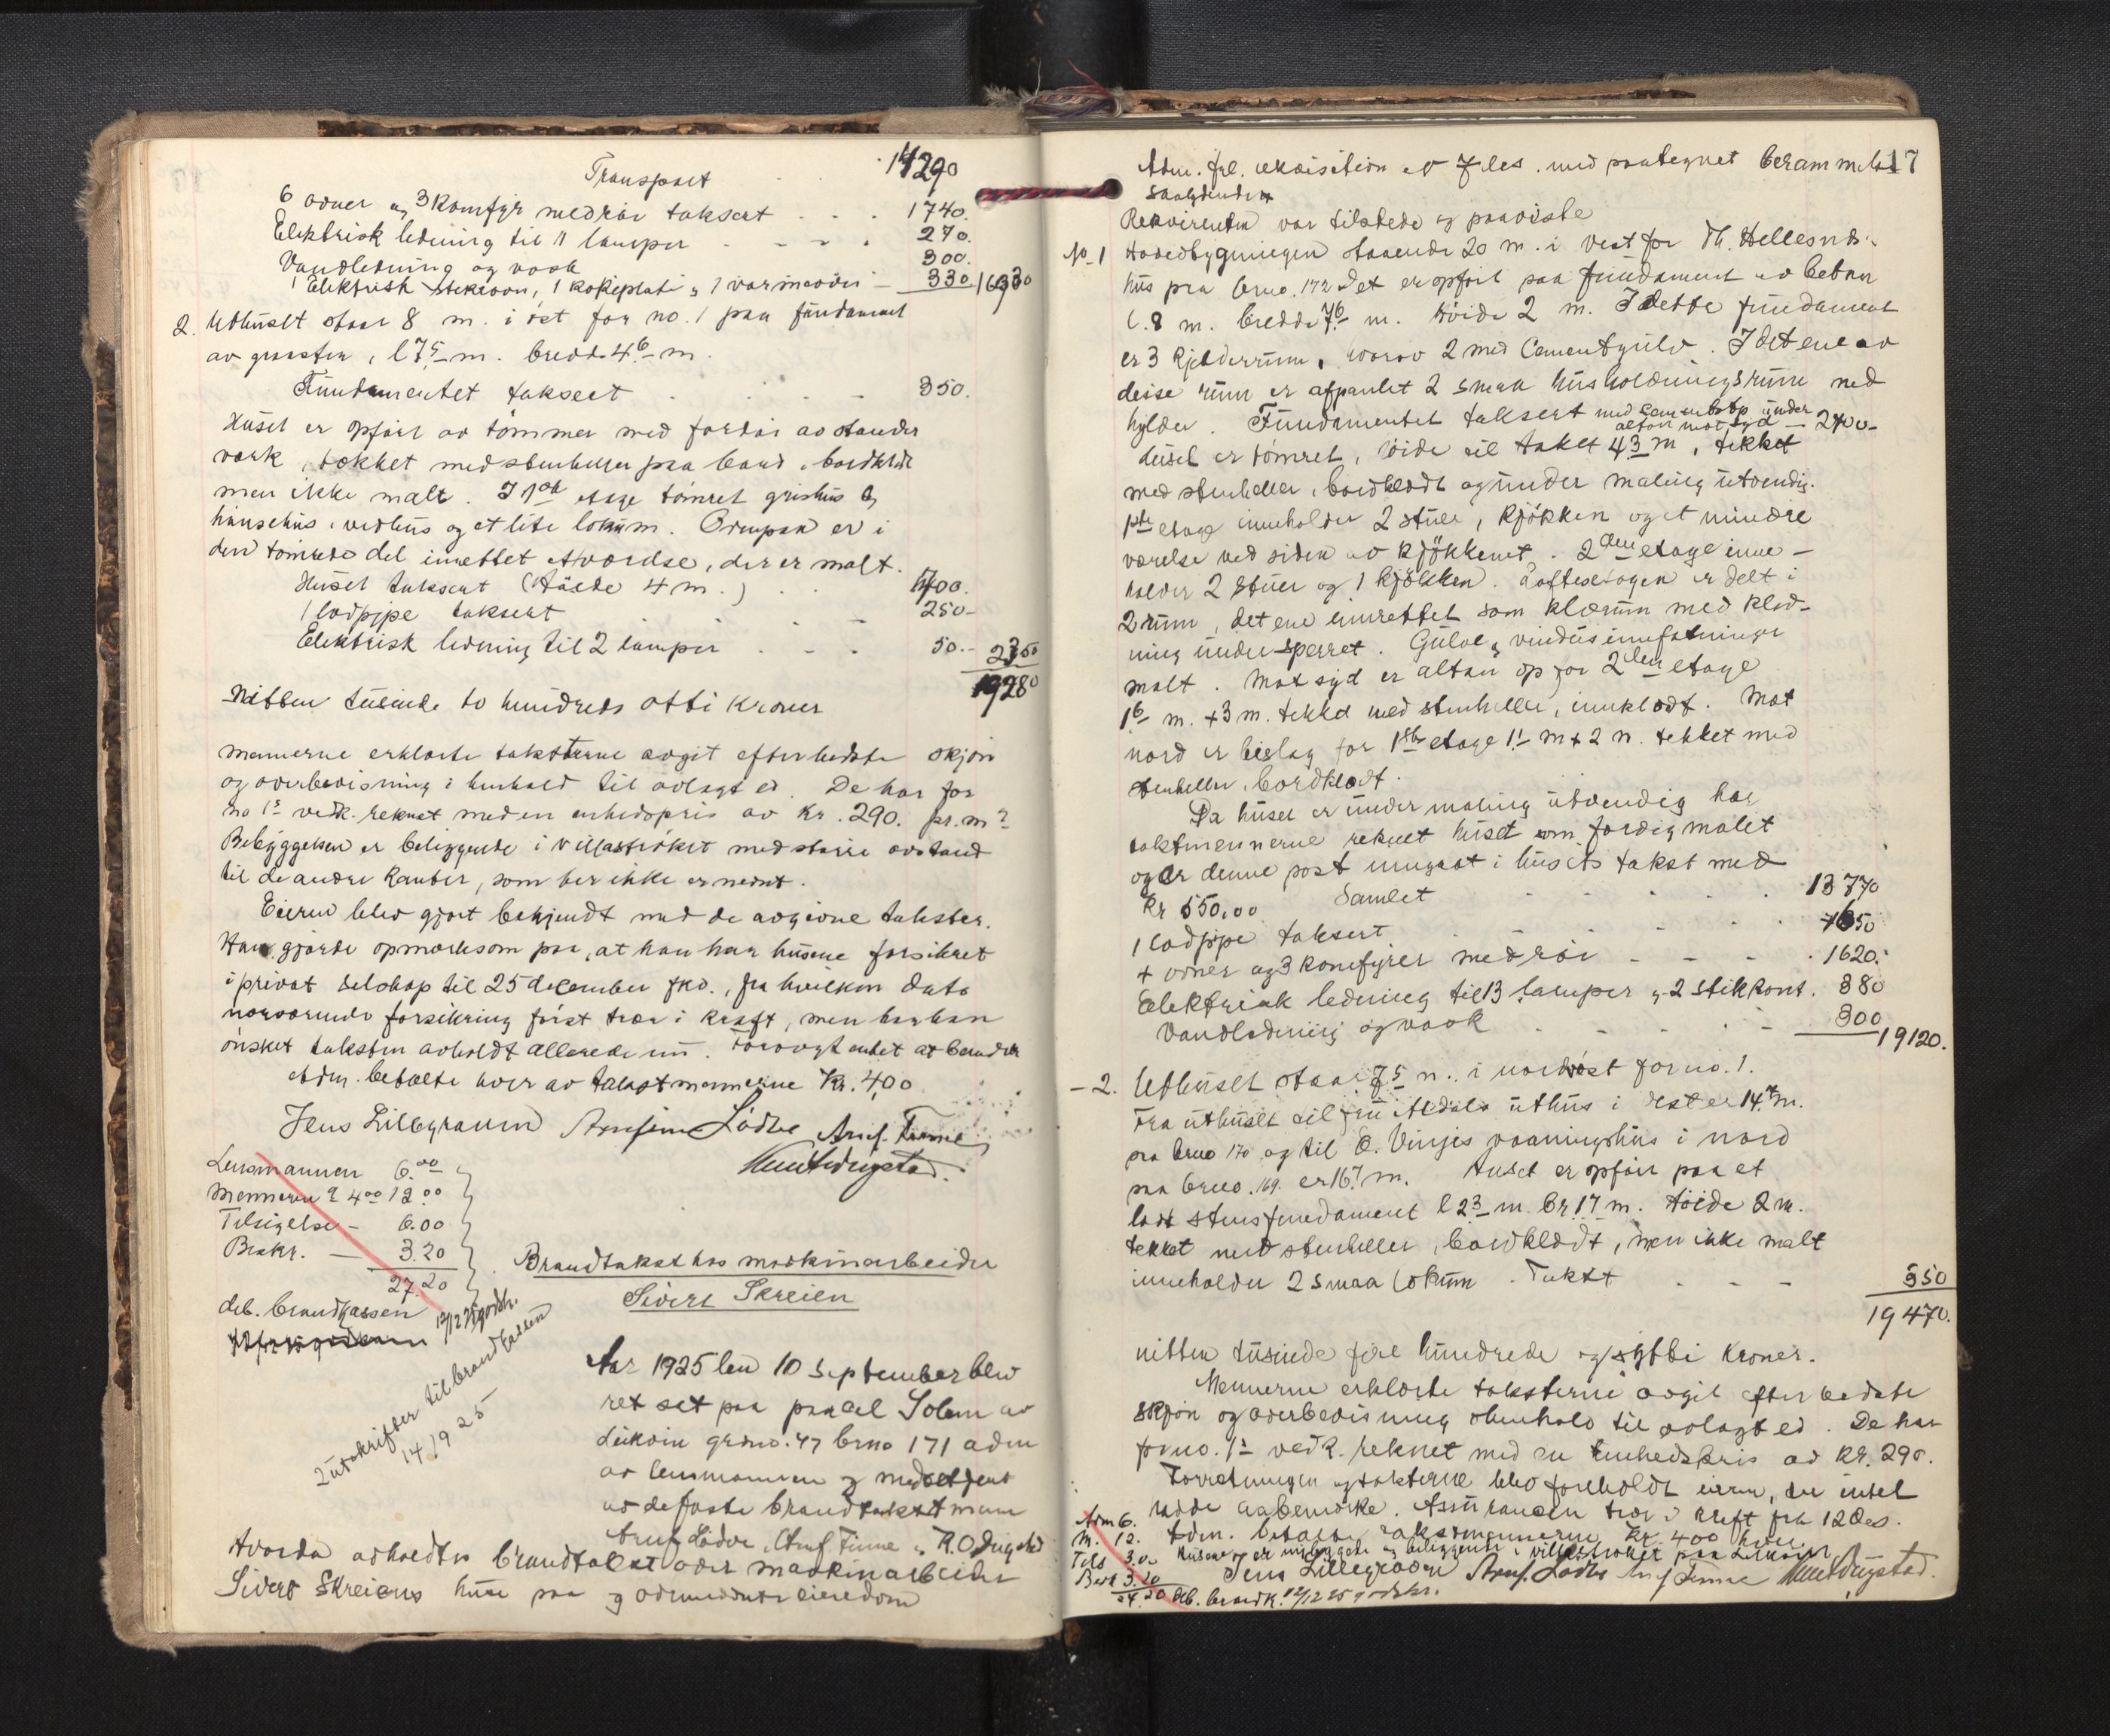 Transport 14290
6 ovner og 3 komfyr med rör taksert 1740.
Elektrisk ledning til 11 lamper 270.
Vandledning og vask 300.
1 Elektrisk stekeovn, 1 kokeplate og 1 varmeovn 330 16930
2. Uthuset staar 8 m. i öst for no. 1 paa fundament
av graasten, l 7,5 m. bredde 4,6 m.
Fundamentet taksert 350.
Huset er opfört av tömmer med fordör av stander
verk, tækket med stenheller paa bord, bordklædt
men ikke malt. I 1ste etage tömret grishus og
hönsehus, vedhus og et lite lokum. Ovenpaa er i
den tömrede del innettet et værelse, der er malt.
Huset taksert (Höide 4 m.) 1700.
1 lodpipe taksert 250-
Elektrisk ledning til 2 lamper 50.- 2350
19280
Nitten tusinde to hundrede otti kroner
Mennerne erklærte taksterne avgit efter bedste skjön
og overbevisning i henhold til avlagt ed. De har for
no 1s vedk. reknet med en enhedspris av kr. 290. pr. m2
Bebyggelsen er beliggende i villaströket med större avstand
til de andre kanter, som her ikke er nevnt.
Eieren blev gjort bekjendt med de avgivne takster.
Han gjorde opmerksom paa, at han har husene forsikret
i privat selskap til 25 december fkd., fra hvilken dato
nærværende forsikring först træder i kraft, men har han
önsket taksten avholdt allerede nu. Forövrigt intet at bemerke
Adm. betalte hver av takstmennerne Kr. 4,00
Jens Lillegraven Arnfinn Lödve Arnf. Finne
Knut Dugstad.
Lensmannen 6.00
Mennerne à 4.00 12.00
Tilsigelse - 6.00
Beskr. — 3.20
27.20
deb. brandkassen 12/12 25 godskr.
2 utskrifter til brandkassen
14/9 25
Brandtakst hos maskinarbeider
Sivert Skreien
Aar 1925 den 10 september blev
ret sat paa parcel Solem av
Lekvin grdno. 47 brno 171 adm
av lensmannen og medbetjent
av de faste brandtakstmenn
Arnf. Lödve, Arnf. Finne og K. O. Dugstad
Hvorda avholdtes brandtakst over maskinarbeider
Sivert Skreiens huse paa og ovennævnte eiendom
17
Adm. frl. rekvisition av 7 ds. med paategnet berammelse
saalydende
Rekvirenten var tilstede og paaviste
No 1 Hovedbygningen staaende 20 m. i vest for Th. Hellesnes
hus paa brno. 172. Det er opfört paa fundament av betong
l. 8 m. bredde 7,6 m. höide 2 m. I dette fundament
er 3 kjelderrum, hvorav 2 med Cementgulv. I det ene av
disse rum er afpanlet 2 smaa husholdningsrum med
hylder. Fundamentet taksert med cementstöp under
altan mot syd 2400-
Huset er tömret, höide til taket 4,3 m, tekket
med stenheller, bordklædt og under maling utvendig.
1ste etage inneholder 2 stuer, kjökken og et mindre
værelse ved siden av kjökkenet. 2den etage inne-
holder 2 stuer og 1 kjökken. Loftsetagen er delt i
2 rum, det ene innrettet som klærum med klæd-
ning under sperret. Gulve og vindusinnfatninger
malt. Mot syd er altan op for 2den etage
1,6 m. + 3 m. tekket med stenheller, innklædt. Mot
nord er bislag for 1ste etage 1,1 m + 2 m. tekket med
stenheller, bordklædt.
Da huset er under maling utvendig har
takstmennerne reknet huset som færdig malet
og er denne post inngaat i husets takst med
kr 550,00 Samlet 13770
1 lodpipe taksert 650
+ ovner og 3 komfyrer med rör 1620.
Elektrisk ledning til 13 lamper og 2 stikkont. 380
Vandledning og vask 300 19120.
- 2. Uthuset staar 7,5 m. i nordvest for no. 1.
Fra uthuset til fru Aldals uthus i vest er 14,7 m.
paa brno 170 og til O. Vinjes vaaningshus i nord
paa brno. 169. er 16,7 m. Huset er opfört paa et
lödt stensfundament l 2,3 m. br. 1,7 m. Höide 2 m.
tekket med stenheller, bordklædt, men ikke malt
inneholder 2 smaa lokum. Takst 350
19470.
nitten tusinde fire hundrede og sytti kroner.
Mennerne erklærte taksterne avgit efter bedste
skjön og overbevisning i henhold til avlagt ed. De har
for no. 1s vedk. reknet med en enhedspris av kr. 290.
Forretningen og taksterne blev foreholdt eieren, der intet
hadde at bemerke. Assurancen træder i kraft fra 12 Des.
Adm. betalte takstmennerne Kr. 400 hver.
Husene er nybyggede og beliggende i villaströket paa Lekvin
Jens Lillegraven Arnf. Lödve Arnf. Finne Knut Dugstad.
Adm 6.
M. 12.
Tils 3.0-
Besk 3.20
24.20 deb. brandk. 12/12 25 godskr.